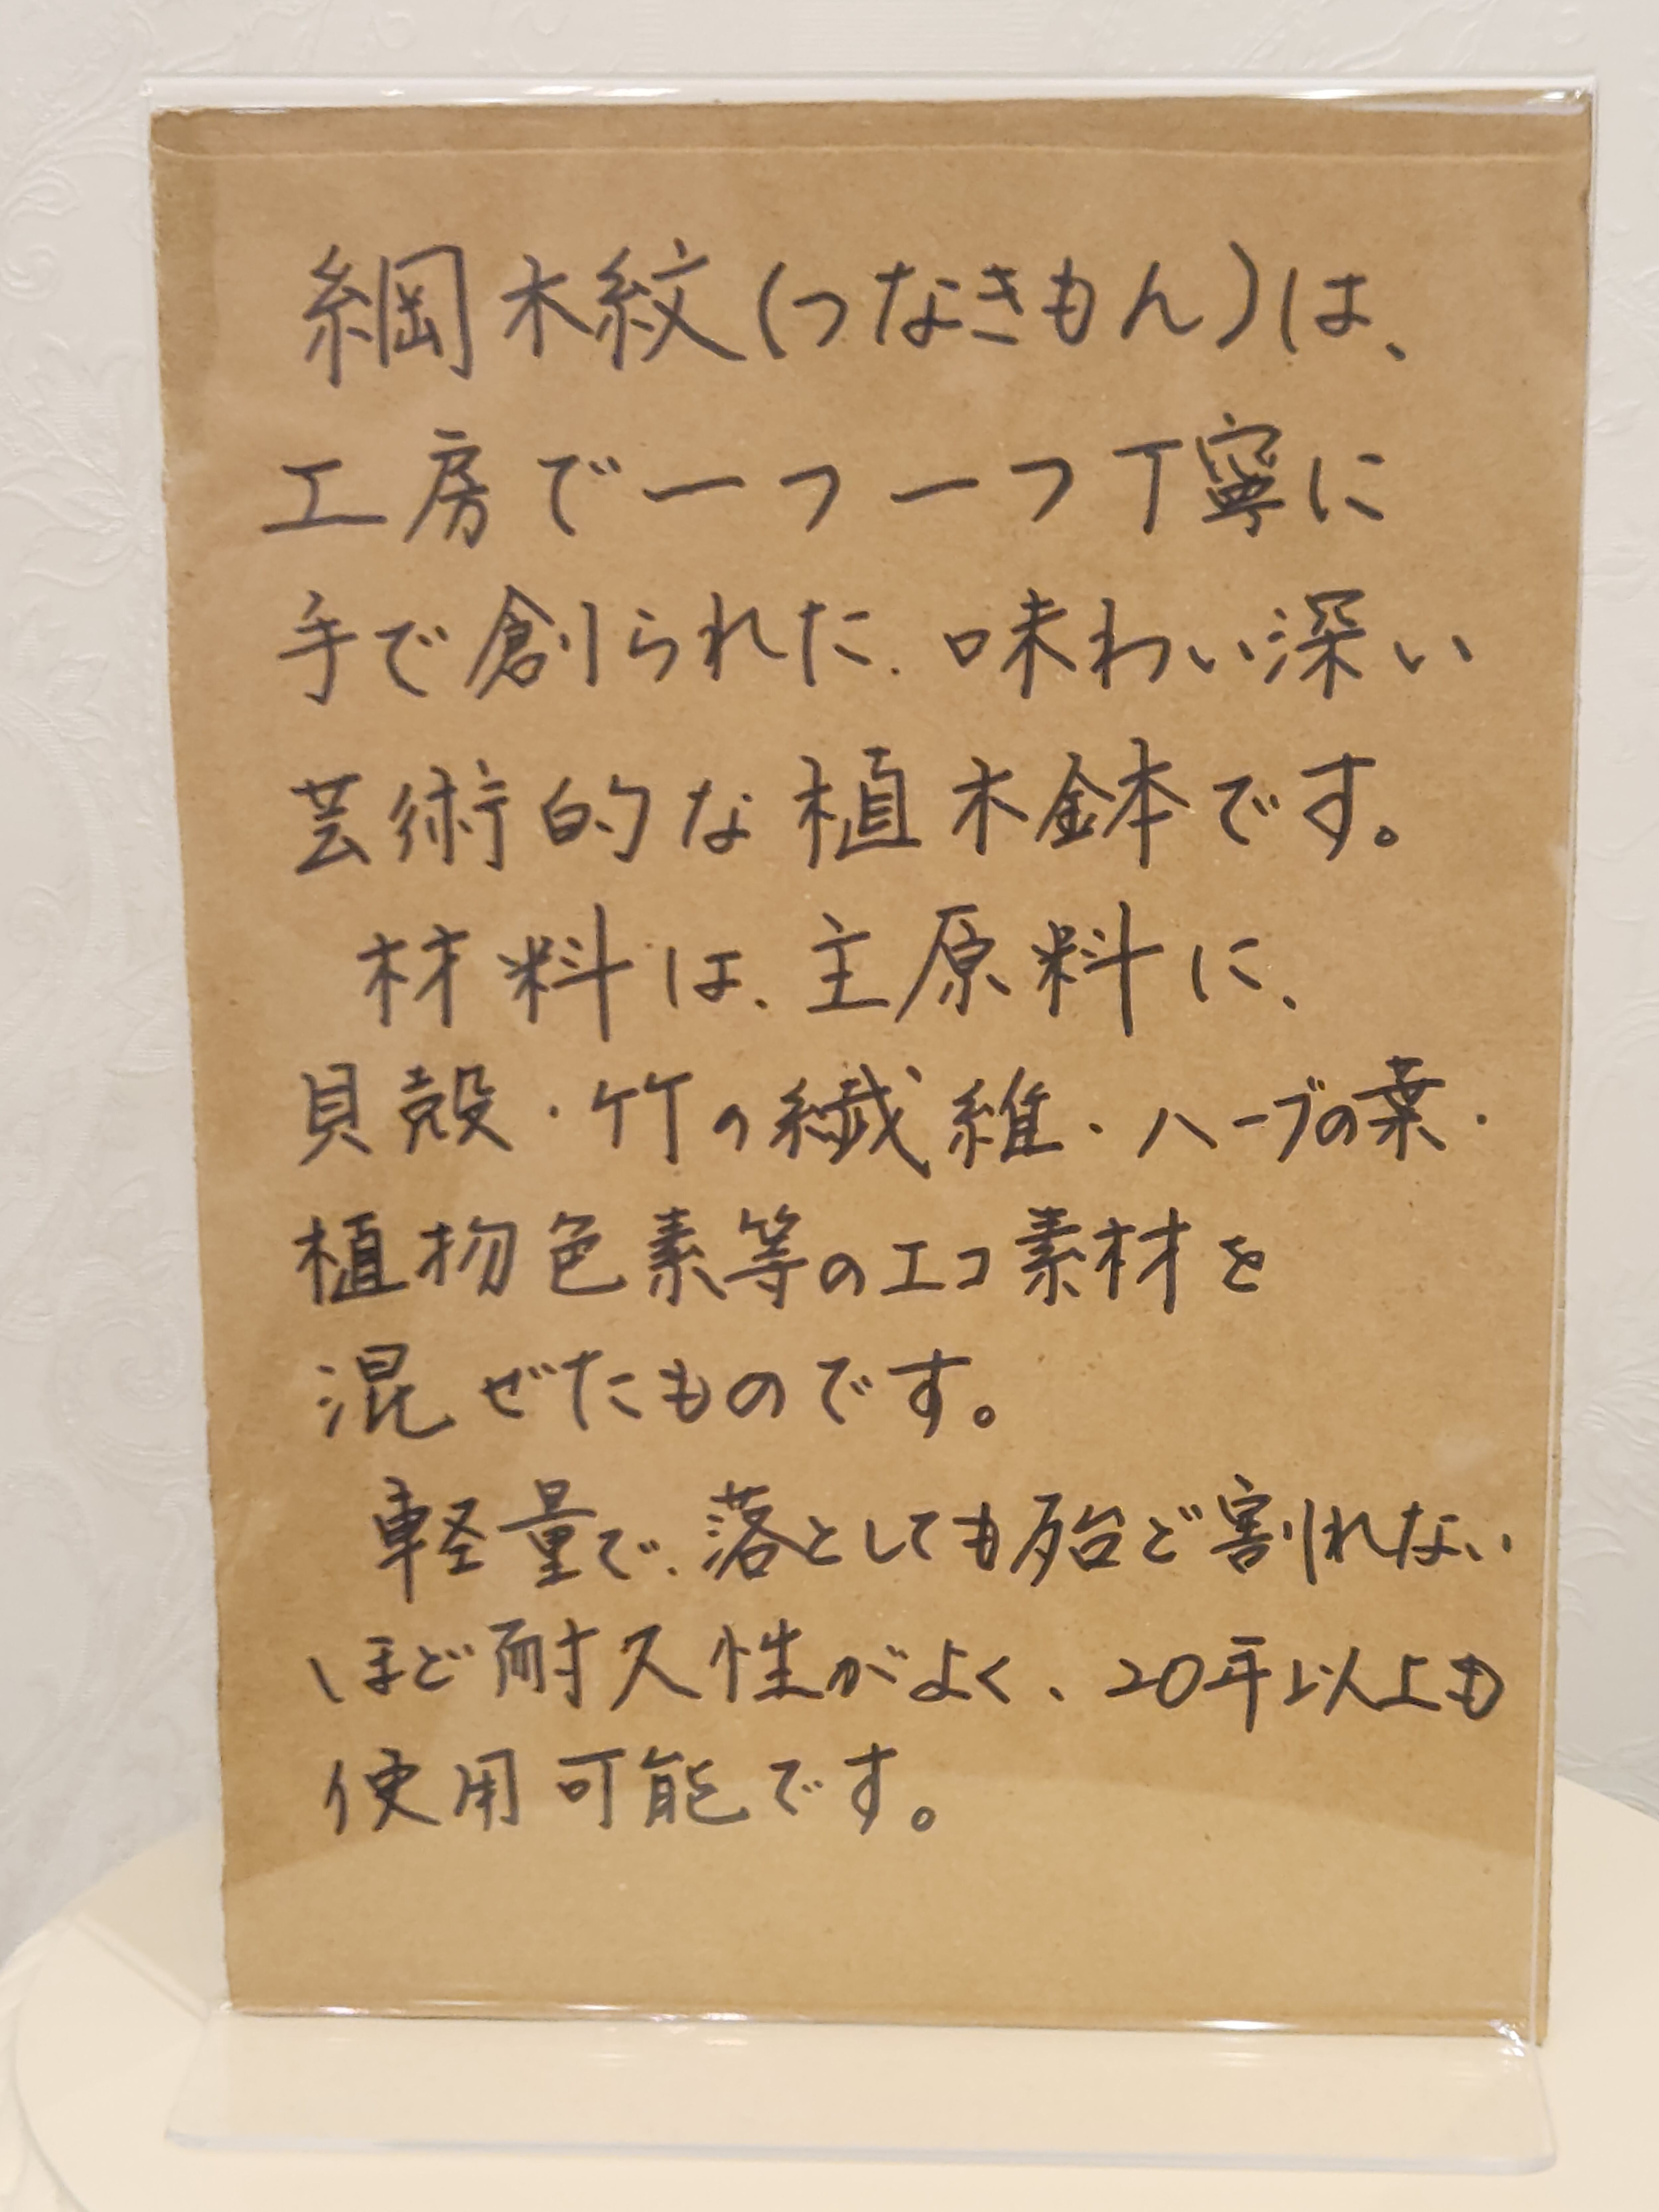 綱木紋(つなきもん)は、
工房で一つ一つ丁寧に
手で創られた、味わい深い
芸術的な植木鉢です。
材料は、主原料に、
貝殻・竹の繊維・ハーブの葉・
植物色素等のエコ素材を
混ぜたものです。
軽量で、落としても殆ど割れない
ほど耐久性がよく、20年以上も
使用可能です。